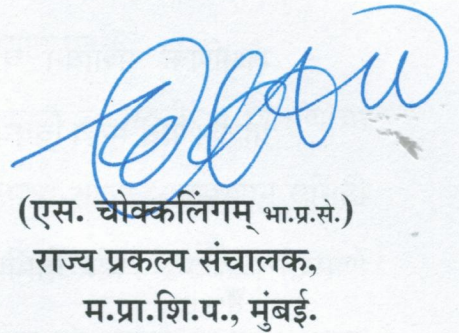 (एस. चोक्कलिंगम् भा.प्र.से.)
राज्य प्रकल्प संचालक,
म.प्रा.शि.प., मुंबई.